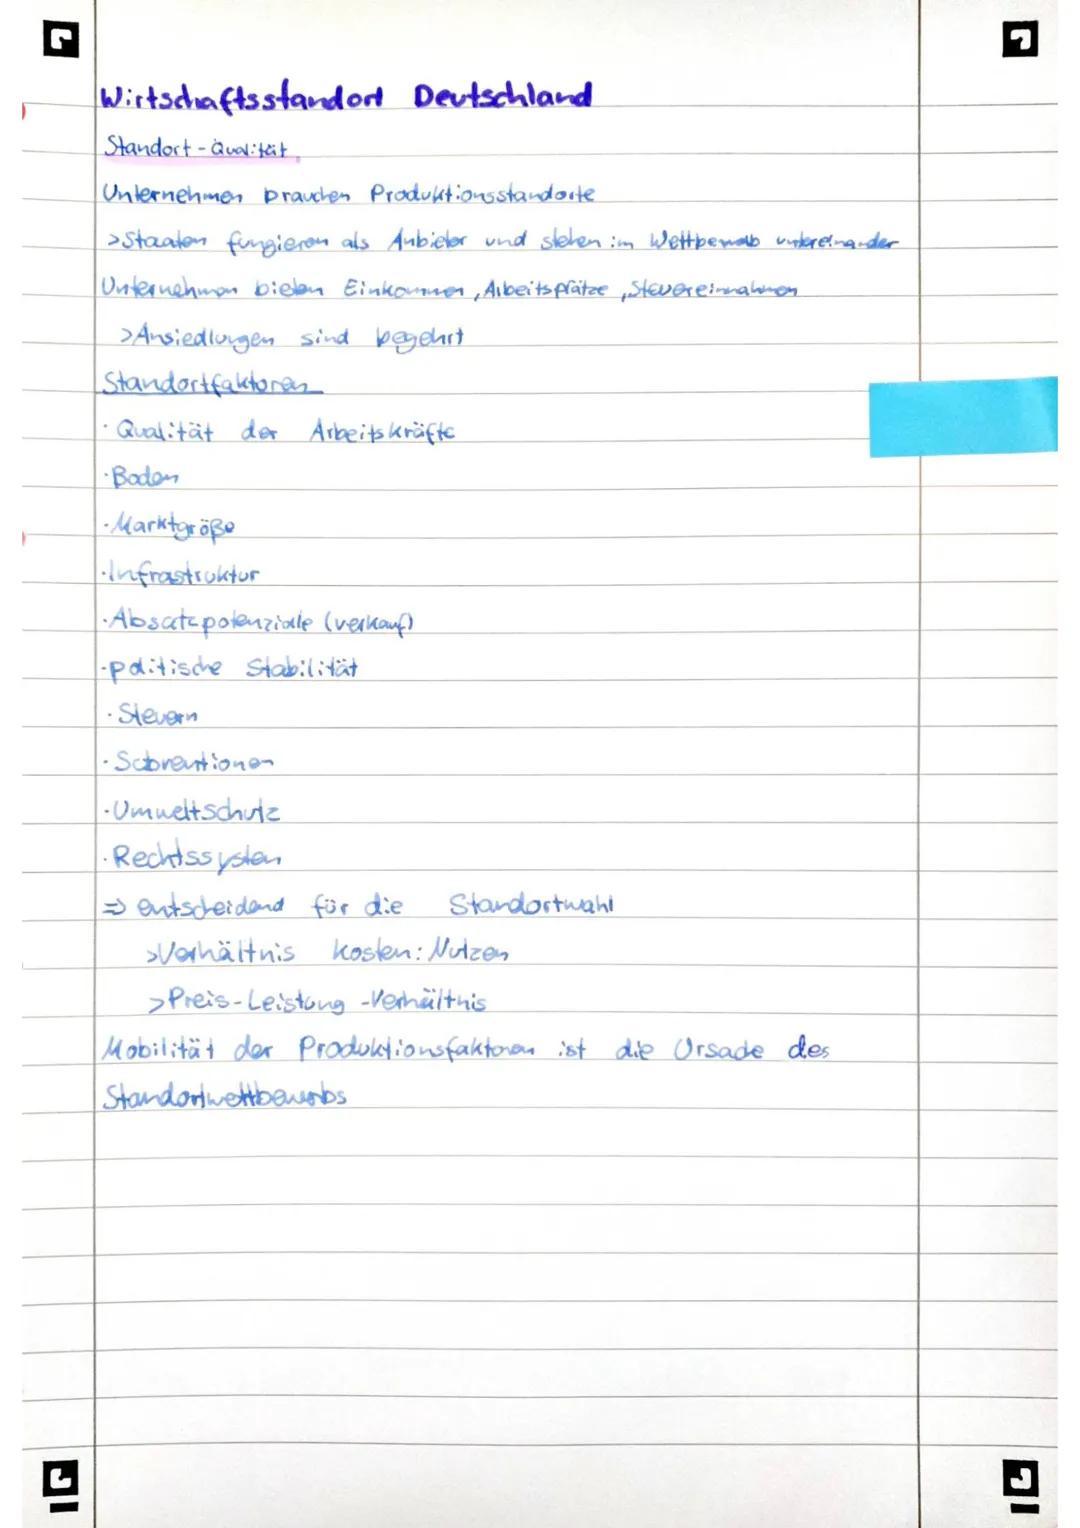 Wirtschaftsstandort Deutschland
Standort-Qualität
Unternehmen brauchen Produktionsstandorte
>Staaten fungieren als Anbieter und stehen im Wettbewerb untereinander
Unternehmen bieten Einkommen, Arbeitsplätze, Steuereinnahmen
>Ansiedlungen sind begehrt
Standortfaktoren
·Qualität der Arbeitskräfte
·Boden
·Marktgröße
·Infrastruktur
·Absatzpotenziale (verkauf)
·politische Stabilität
·Steuern
·Subventionen
·Umweltschutz
·Rechtssystem
=> entscheidend für die Standortwahl
>Verhältnis Kosten:Nutzen
>Preis-Leistung-Verhältnis
Mobilität der Produktionsfaktoren ist die Ursache des
Standortwettbewerbs